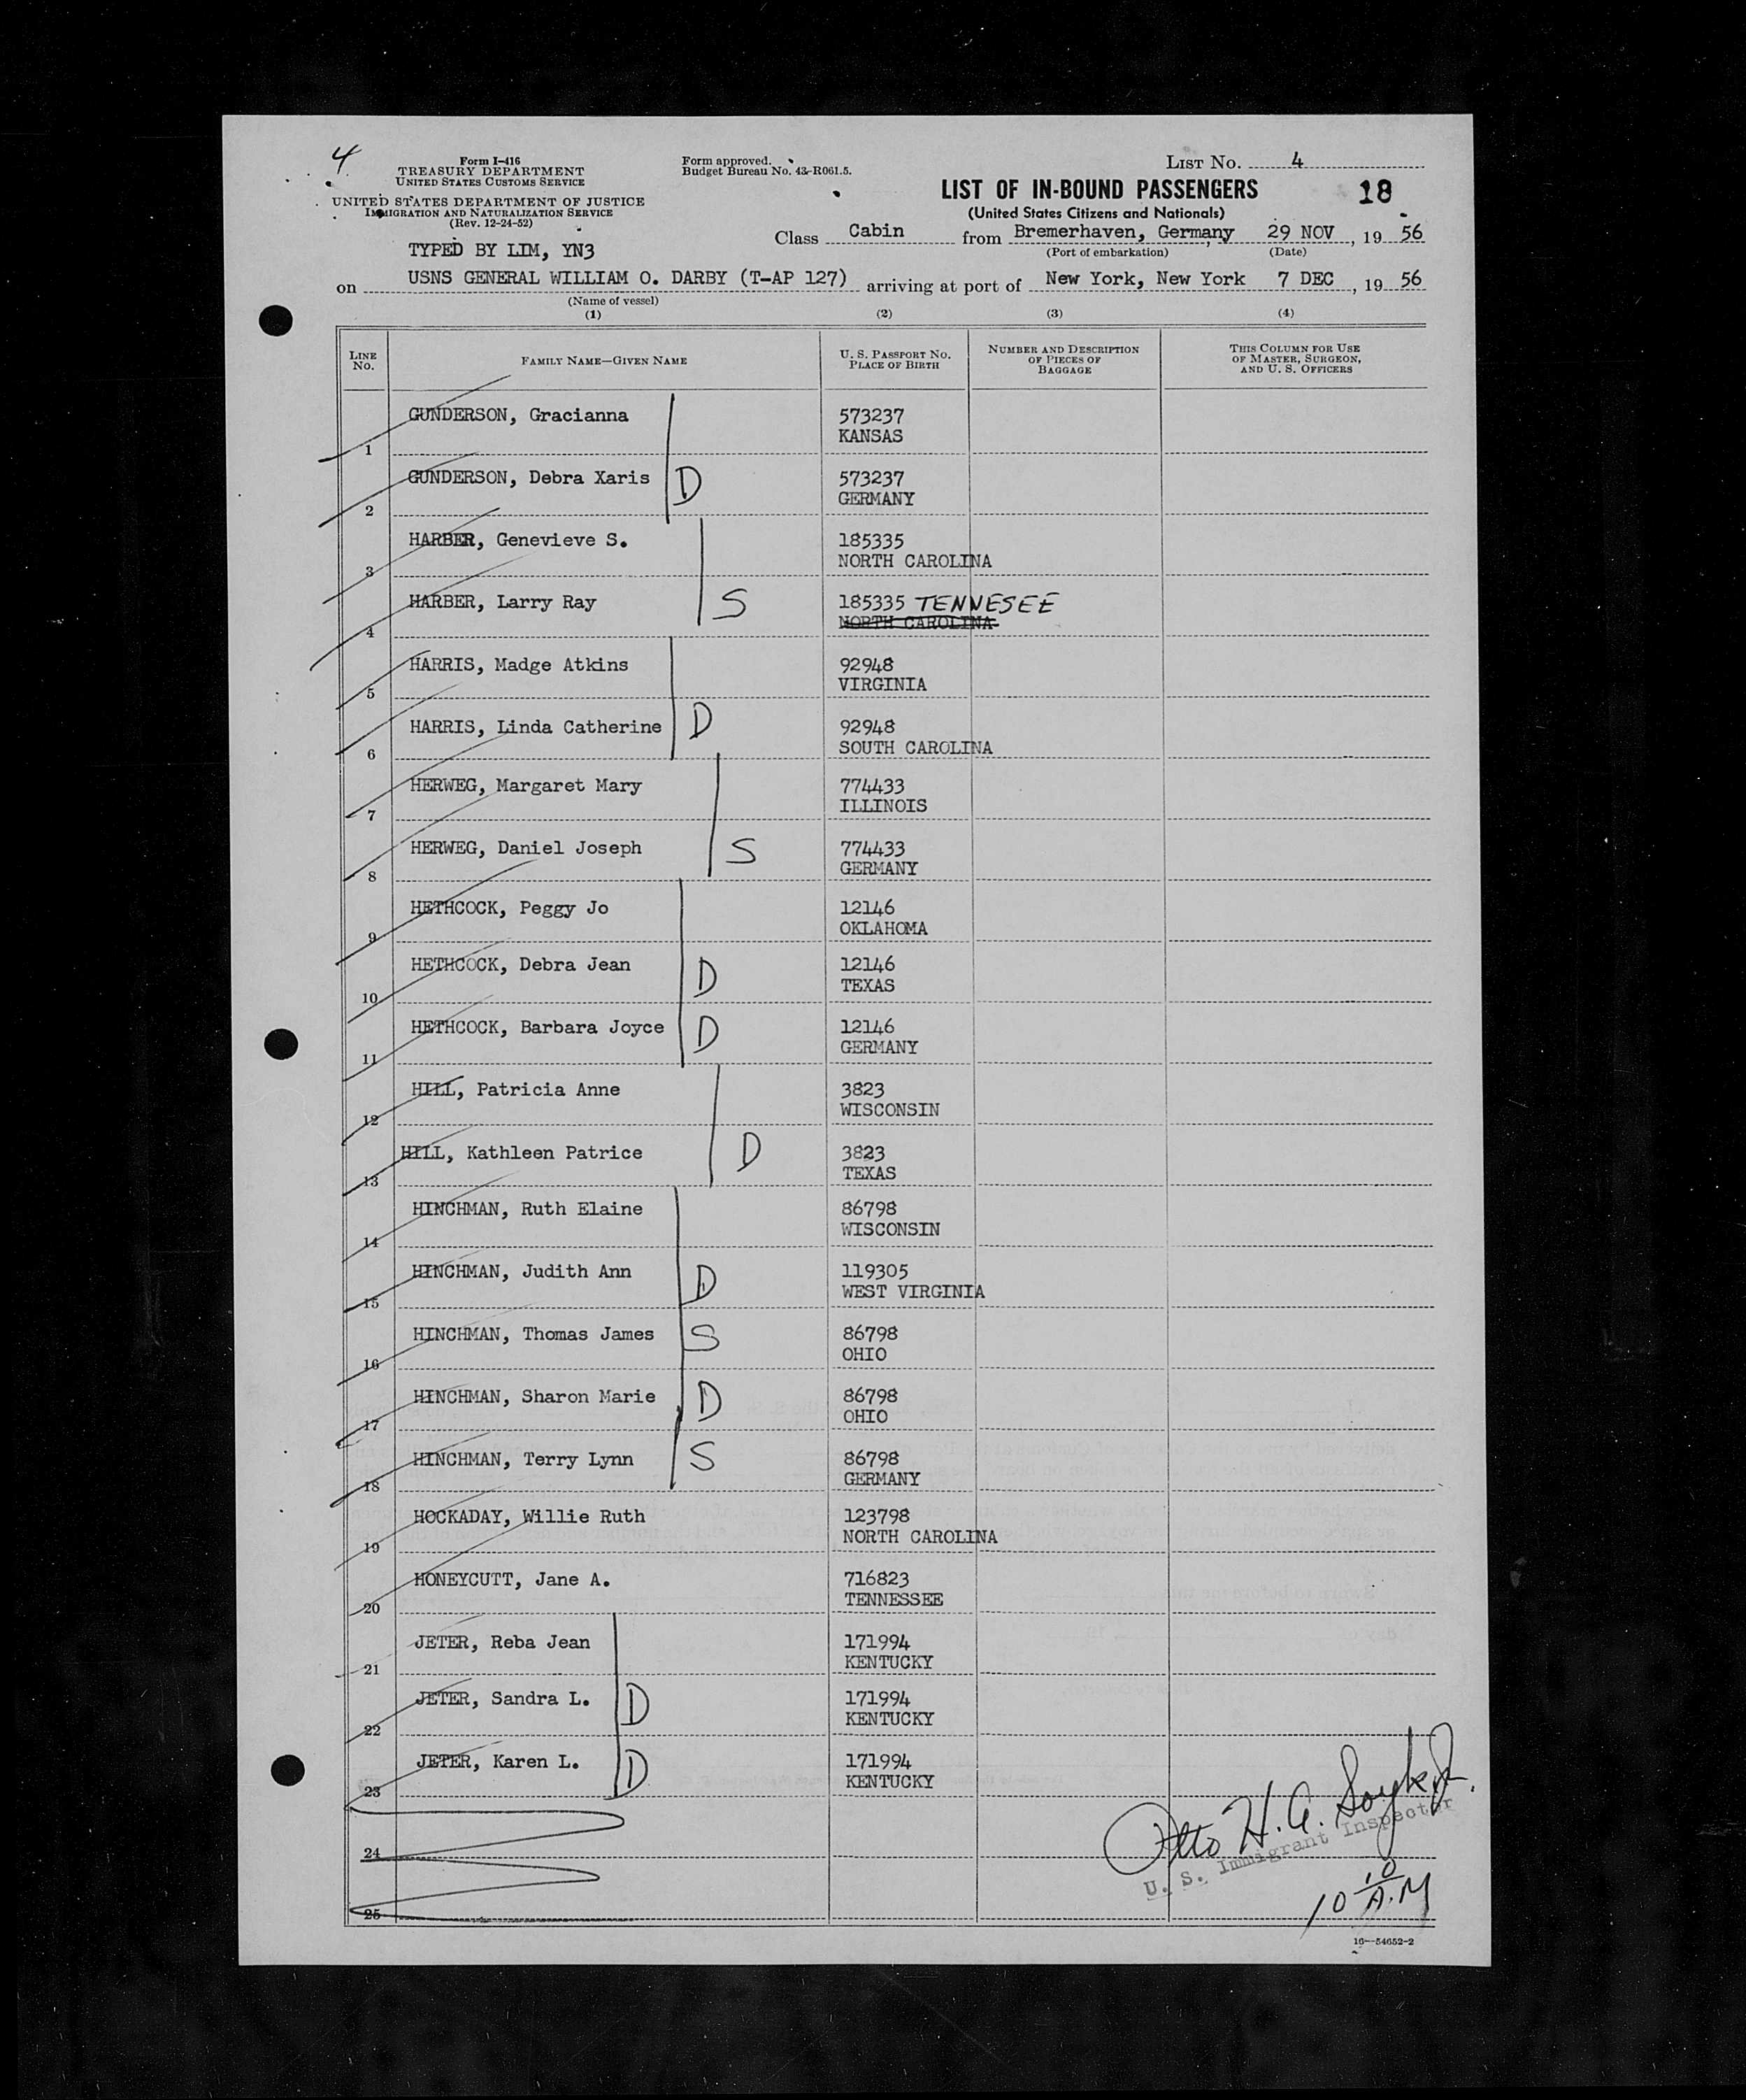 4
Form I-416
TREASURY DEPARTMENT
UNITED STATES CUSTOMS SERVICE
UNITED STATES DEPARTMENT OF JUSTICE
IMMIGRATION AND NATURALIZATION SERVICE
(Rev. 12-24-52)
TYPED BY LIM, YN3
Form approved.
Budget Bureau No. 43-R061.5.
LIST No. 4
LIST OF IN-BOUND PASSENGERS
18
(United States Citizens and Nationals)
Class Cabin from Bremerhaven, Germany, 29 NOV, 19 56
(Port of embarkation) (Date)
on USNS GENERAL WILLIAM O. DARBY (T-AP 127) arriving at port of New York, New York 7 DEC, 19 56
(Name of vessel)
(1) (2) (3) (4)
LINE No. FAMILY NAME—GIVEN NAME U. S. PASSPORT No. PLACE OF BIRTH NUMBER AND DESCRIPTION OF PIECES OF BAGGAGE THIS COLUMN FOR USE OF MASTER, SURGEON, AND U. S. OFFICERS
GUNDERSON, Gracianna 573237
1 KANSAS
GUNDERSON, Debra Xaris D 573237
2 GERMANY
HARBER, Genevieve S. 185335
3 NORTH CAROLINA
HARBER, Larry Ray S 185335 TENNESEE
4 NORTH CAROLINA
HARRIS, Madge Atkins 92948
5 VIRGINIA
HARRIS, Linda Catherine D 92948
6 SOUTH CAROLINA
HERWEG, Margaret Mary 774433
7 ILLINOIS
HERWEG, Daniel Joseph S 774433
8 GERMANY
HETHCOCK, Peggy Jo 12146
9 OKLAHOMA
HETHCOCK, Debra Jean D 12146
10 TEXAS
HETHCOCK, Barbara Joyce D 12146
11 GERMANY
HILL, Patricia Anne 3823
12 WISCONSIN
HILL, Kathleen Patrice D 3823
13 TEXAS
HINCHMAN, Ruth Elaine 86798
14 WISCONSIN
HINCHMAN, Judith Ann D 119305
15 WEST VIRGINIA
HINCHMAN, Thomas James S 86798
16 OHIO
HINCHMAN, Sharon Marie D 86798
17 OHIO
HINCHMAN, Terry Lynn S 86798
18 GERMANY
HOCKADAY, Willie Ruth 123798
19 NORTH CAROLINA
HONEYCUTT, Jane A. 716823
20 TENNESSEE
JETER, Reba Jean 171994
21 KENTUCKY
JETER, Sandra L. D 171994
22 KENTUCKY
JETER, Karen L. D 171994
23 KENTUCKY
24
25
Otto H. A.
U. S. Immigrant Inspector
10 10 A.M
16—54652-2